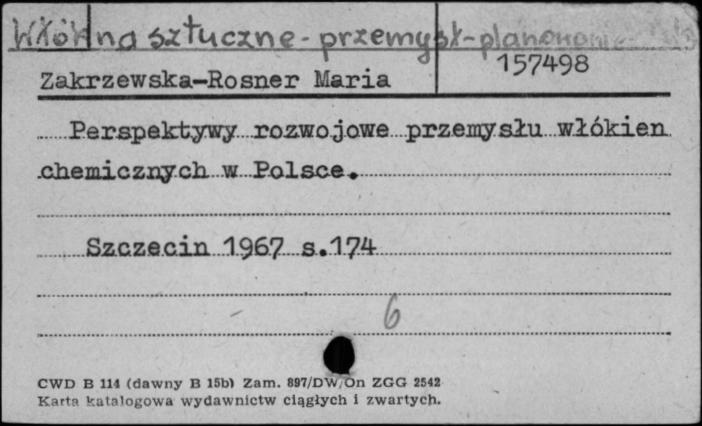 Włókna sztuczne - przemysł - planowanie
157498
Zakrzewska-Rosner Maria
Perspektywy rozwojowe przemysłu włókien
chemicznych w Polsce.
Szczecin 1967 s.174
6
CWD B 114 (dawny B 15b) Zam. 897/DW/On ZGG 2542
Karta katalogowa wydawnictw ciągłych i zwartych.